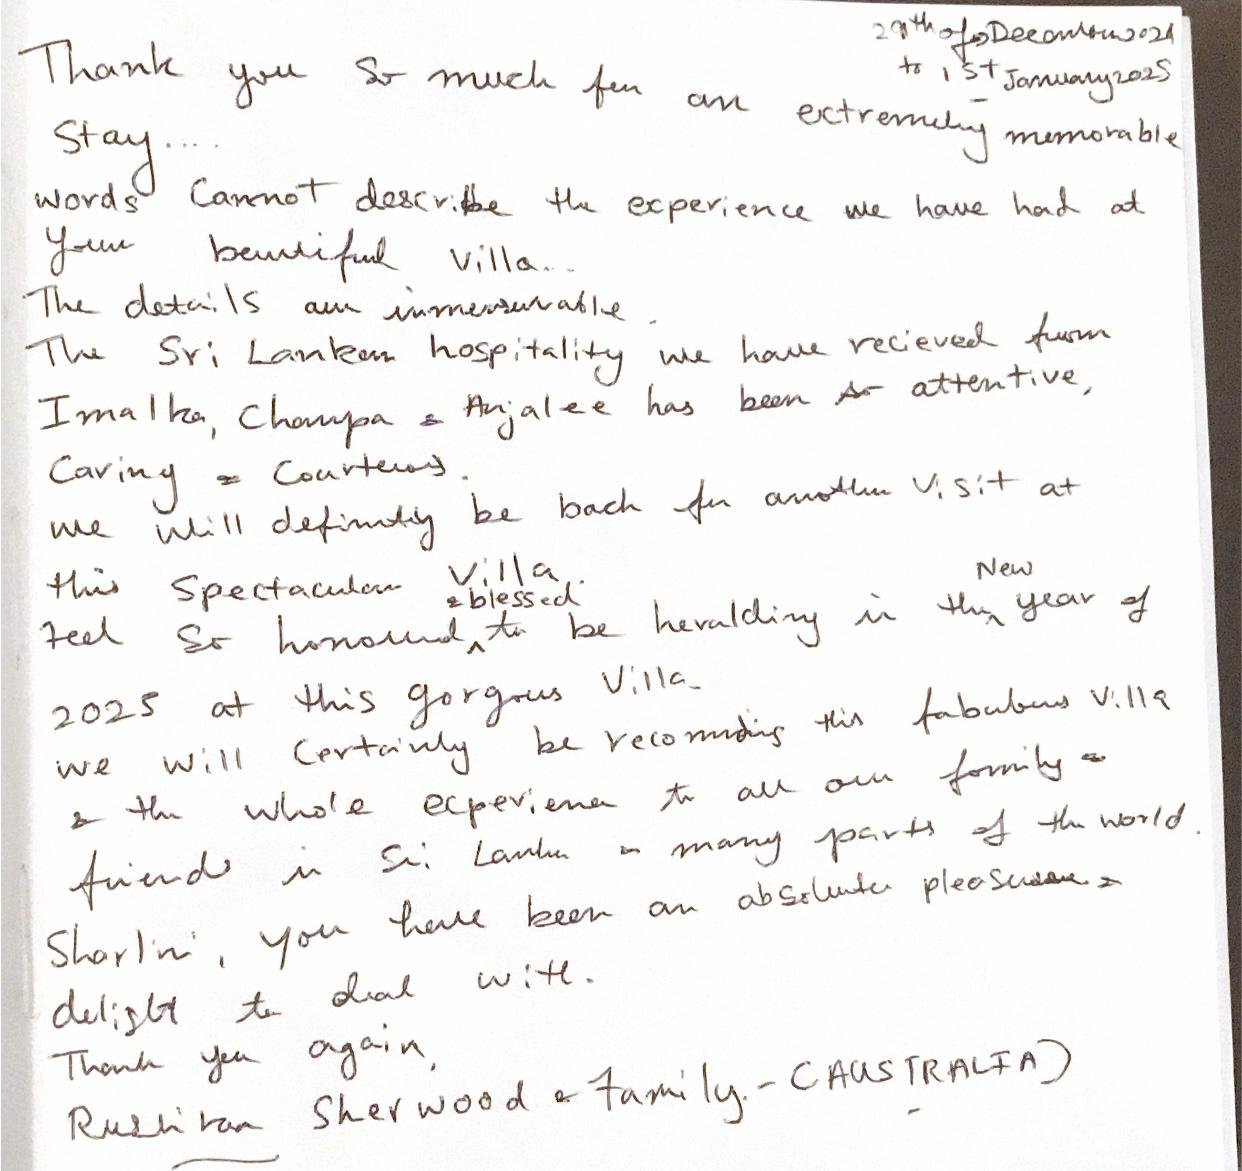 29th of December 2024
to 1st January 2025
Thank you so much for an extremely memorable
Stay....
words cannot describe the experience we have had at
your beautiful villa...
The details are immeasurable.
The Sri Lankan hospitality we have recieved from
Imalka, Champa & Anjalee has been so attentive,
Caring & Courteous.
we will definitely be back for another visit at
this Spectacular Villa..
Feel so honoured & blessed to be heralding in the New year of
2025 at this gorgous Villa
we will Certainly be recomending this fabulous villa
& the whole experience to all our family &
friends in Sri Lanka & many parts of the world.
Sharlini, you have been an absolute pleasure &
delight to deal with.
Thank you again,
Sherwood & family. - (AUSTRALIA)